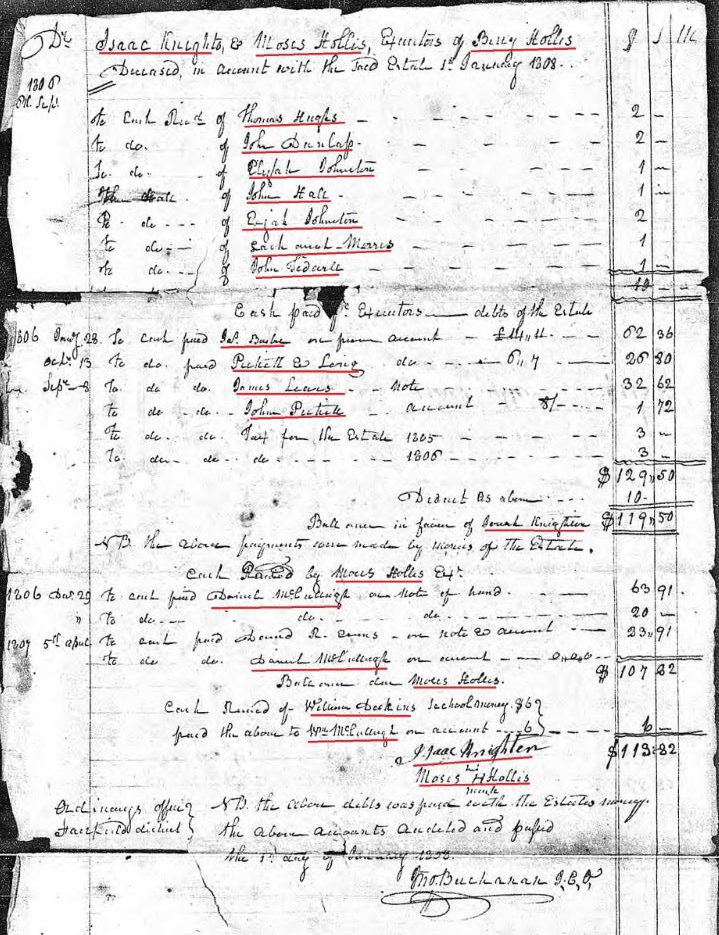 Dr Isaac Knights, & Moses Hollis, Executors of Berry Hollis $ | M
Deceased, in account with the Said Estate 1st January 1808.
1806
Sept.
to Cash Recd of Thomas Hughs 2 –
to do. of John Dunlap 2 –
To do. of Elijah Johnston 1 –
of John Hall 1 –
To do of Johnston 2
to do of Morris 1
to do of John 1
10
Cash paid Executors debts of the Estate
1806 28 To cash paid on account £14,,11 62 36
13 to do. paid Pickett & Long do 6,,7 26 80
Sept 8 To do do. James Lewis Note 32 62
to do do John Pickett account 8/ 1 72
To do. do. Tax for the Estate 1805 3 –
To do do do 1806 3 –
$129,,50
Deduct as above 10.
Ballance in favor of Knighten $119,,50
NB. the above payments were made by monies of the Estate.
Cash by Moses Hollis Exr.
1806 29 to cash paid Daniel McCullough on Note of hand 63 91
" to do do. do 20 –
1807 5th April to cash paid David R. on note & account 23,,91
to do do. Daniel McCullough on account
$ 107 82
Ballance due Moses Hollis.
Cash Received of William School money. $6
paid the above to Wm McCullough on account 6 6 –
Isaac Knighten $113:82
Moses H Hollis
his
mark
Ordinarys office NB. the above debts was paid with the Estates money.
Fairfield district the above accounts Audited and passed
the 1st day of January 1808.
Jno. Buchanan